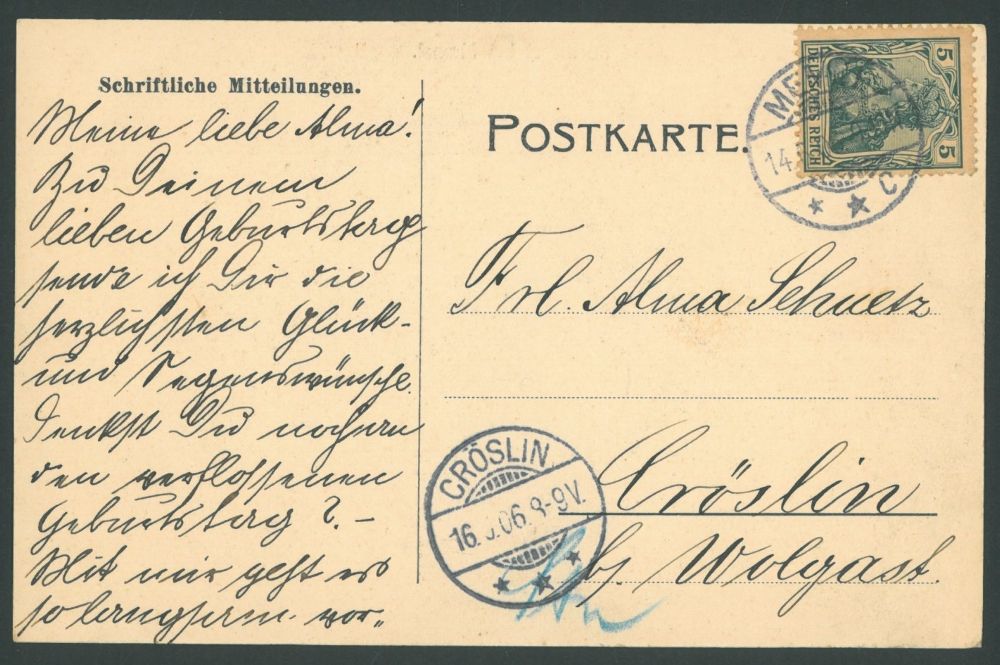 Schriftliche Mitteilungen.
Meine liebe Alma!
Zu Deinem
lieben Geburtstag
sende ich Dir die
herzlichsten Glück-
und Segenswünsche.
Denkst Du noch an
den verflossenen
Geburtstag?. –
Mit mir geht es
so langsam vor-
POSTKARTE.
5
DEUTSCHES REICH
5
14.
C
Frl. Alma Schuetz
CRÖSLIN
16. .06. 8-9V.
Cröslin
b/ Wolgast.